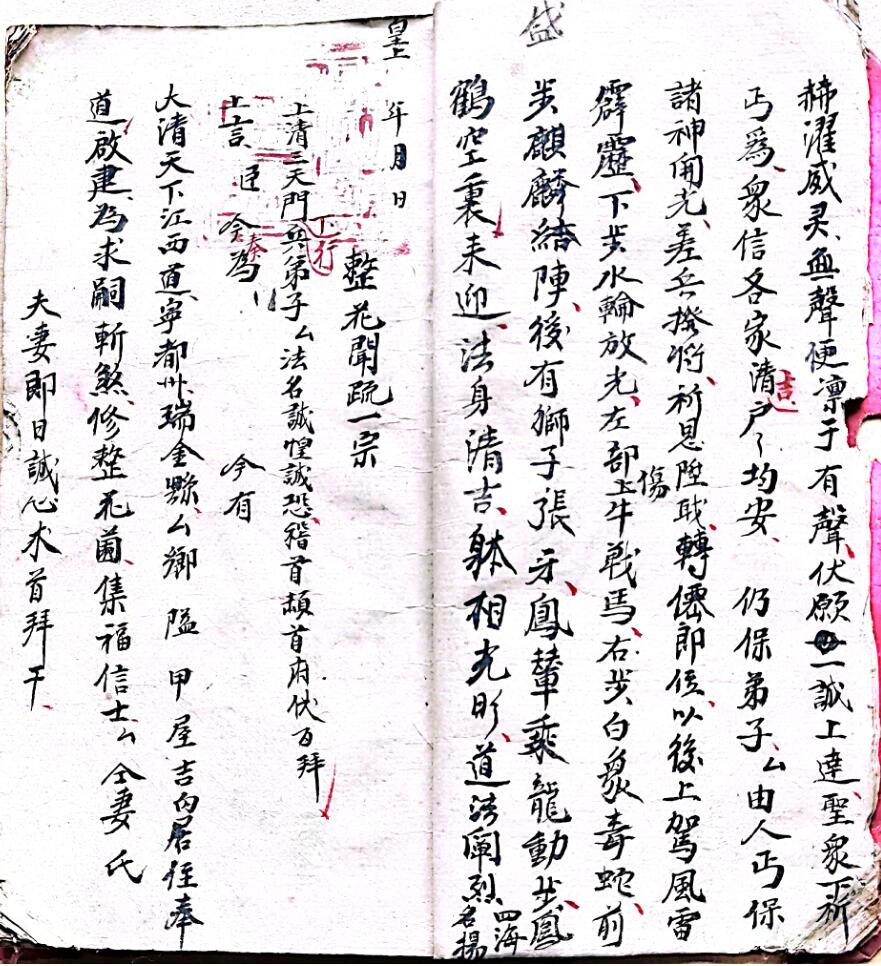 盛
赫濯威灵無聲便凛于有聲伏願一誠上達聖衆下祈
丐爲衆信各家清吉户々均安仍保弟子厶由人丐保
諸神開光差兵撥將祈恩陞职轉僊郎位以後上驾風雷
霹靂下步水輪放光左部上牛戰馬右步白象毒蛇前
傷
步麒麟結陣後有獅子張牙鳳輦乘龍動步鳳
鶴空裏来迎法身清吉躰相光明道法闡烈四海名揚
皇
年月日
整花開疏一宗
上清三天門下行兵弟子厶法名誠惶誠恐稽首頓首府伏百拜
上言臣今為
奏
今有
大清天下江西道寧都州瑞金縣厶鄉隘甲屋吉向居住奉
道啟建為求嗣斬煞修整花園集福信士厶仝妻氏
夫妻即日誠心木首拜干